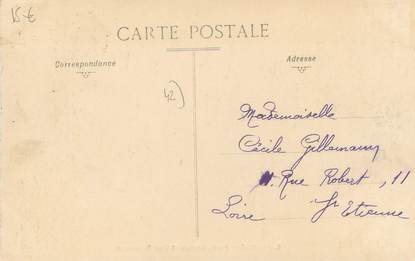 15 €
CARTE POSTALE
Correspondance
Adresse
42)
Mademoiselle
Cécile
Rue Robert, 11
Loire St Etienne